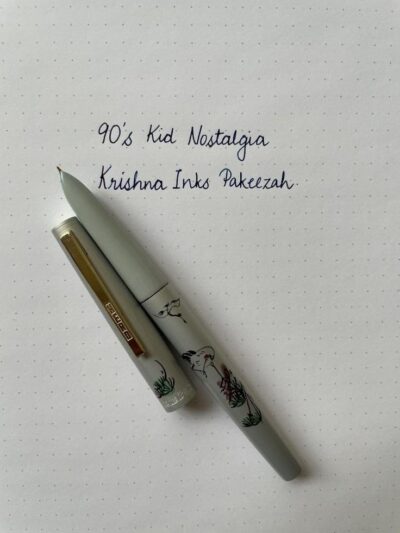 90's Kid Nostalgia
Krishna Inks Pakeezah.